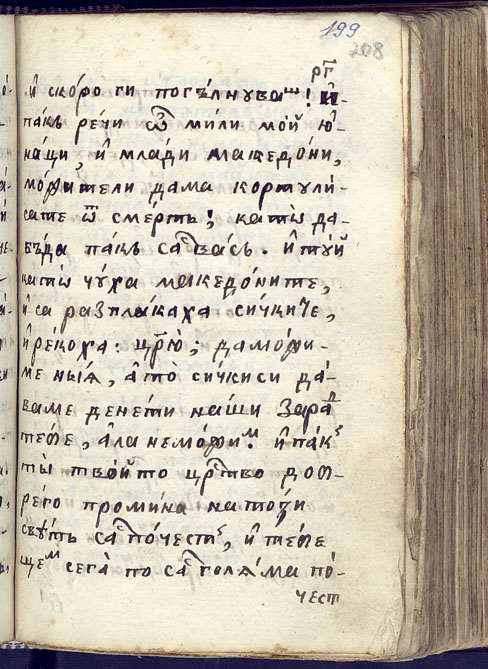 199
208
рг҃
и҆ ско́ро ги погъ́лнуваш! И҆-
пакъ ре́чи ѿ ми́ли мо́й ю҆-
на́ци, и҆ мла́ди македо́ни,
мо́жители дама кортули́-
сате ѿ сме́рть; катѡ̀ да-
бъ́да пакъ са҆ васъ. и҆ ту́й
катѡ̀ чу́ха македо́ните,
и҆ са разпла́каха си́чките,
и҆ ре́коха: цр҃ю̀; дамо́жи-
ме ны́ѧ, а҆ то̀ си́чкиси да́-
ваме дене́ти на́ши Зара́д
те́бе, а҆ла немо́жим. и҆ па́к
ты̀ тво́йто цр҃тво доб-
ре́го проми́на на то́зи
све́тъ са҆ по́чест, и҆ те́бе
щем сега̀ по са҆ голѧ́ма по́-
чест